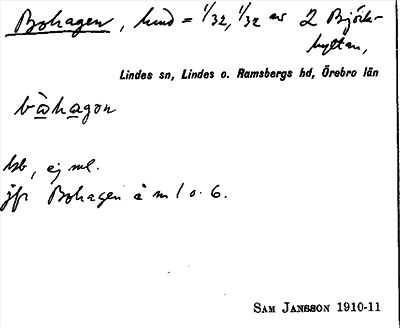 Bohagen, hmd = 1/32, 1/32 av 2 Björk-
hyttan,
Lindes sn, Lindes o. Ramsbergs hd, Örebro län
bὼhagon
bsb, ej ml.
jfr Bohagen å m 1 o. 6.
SAM JANSSON 1910-11